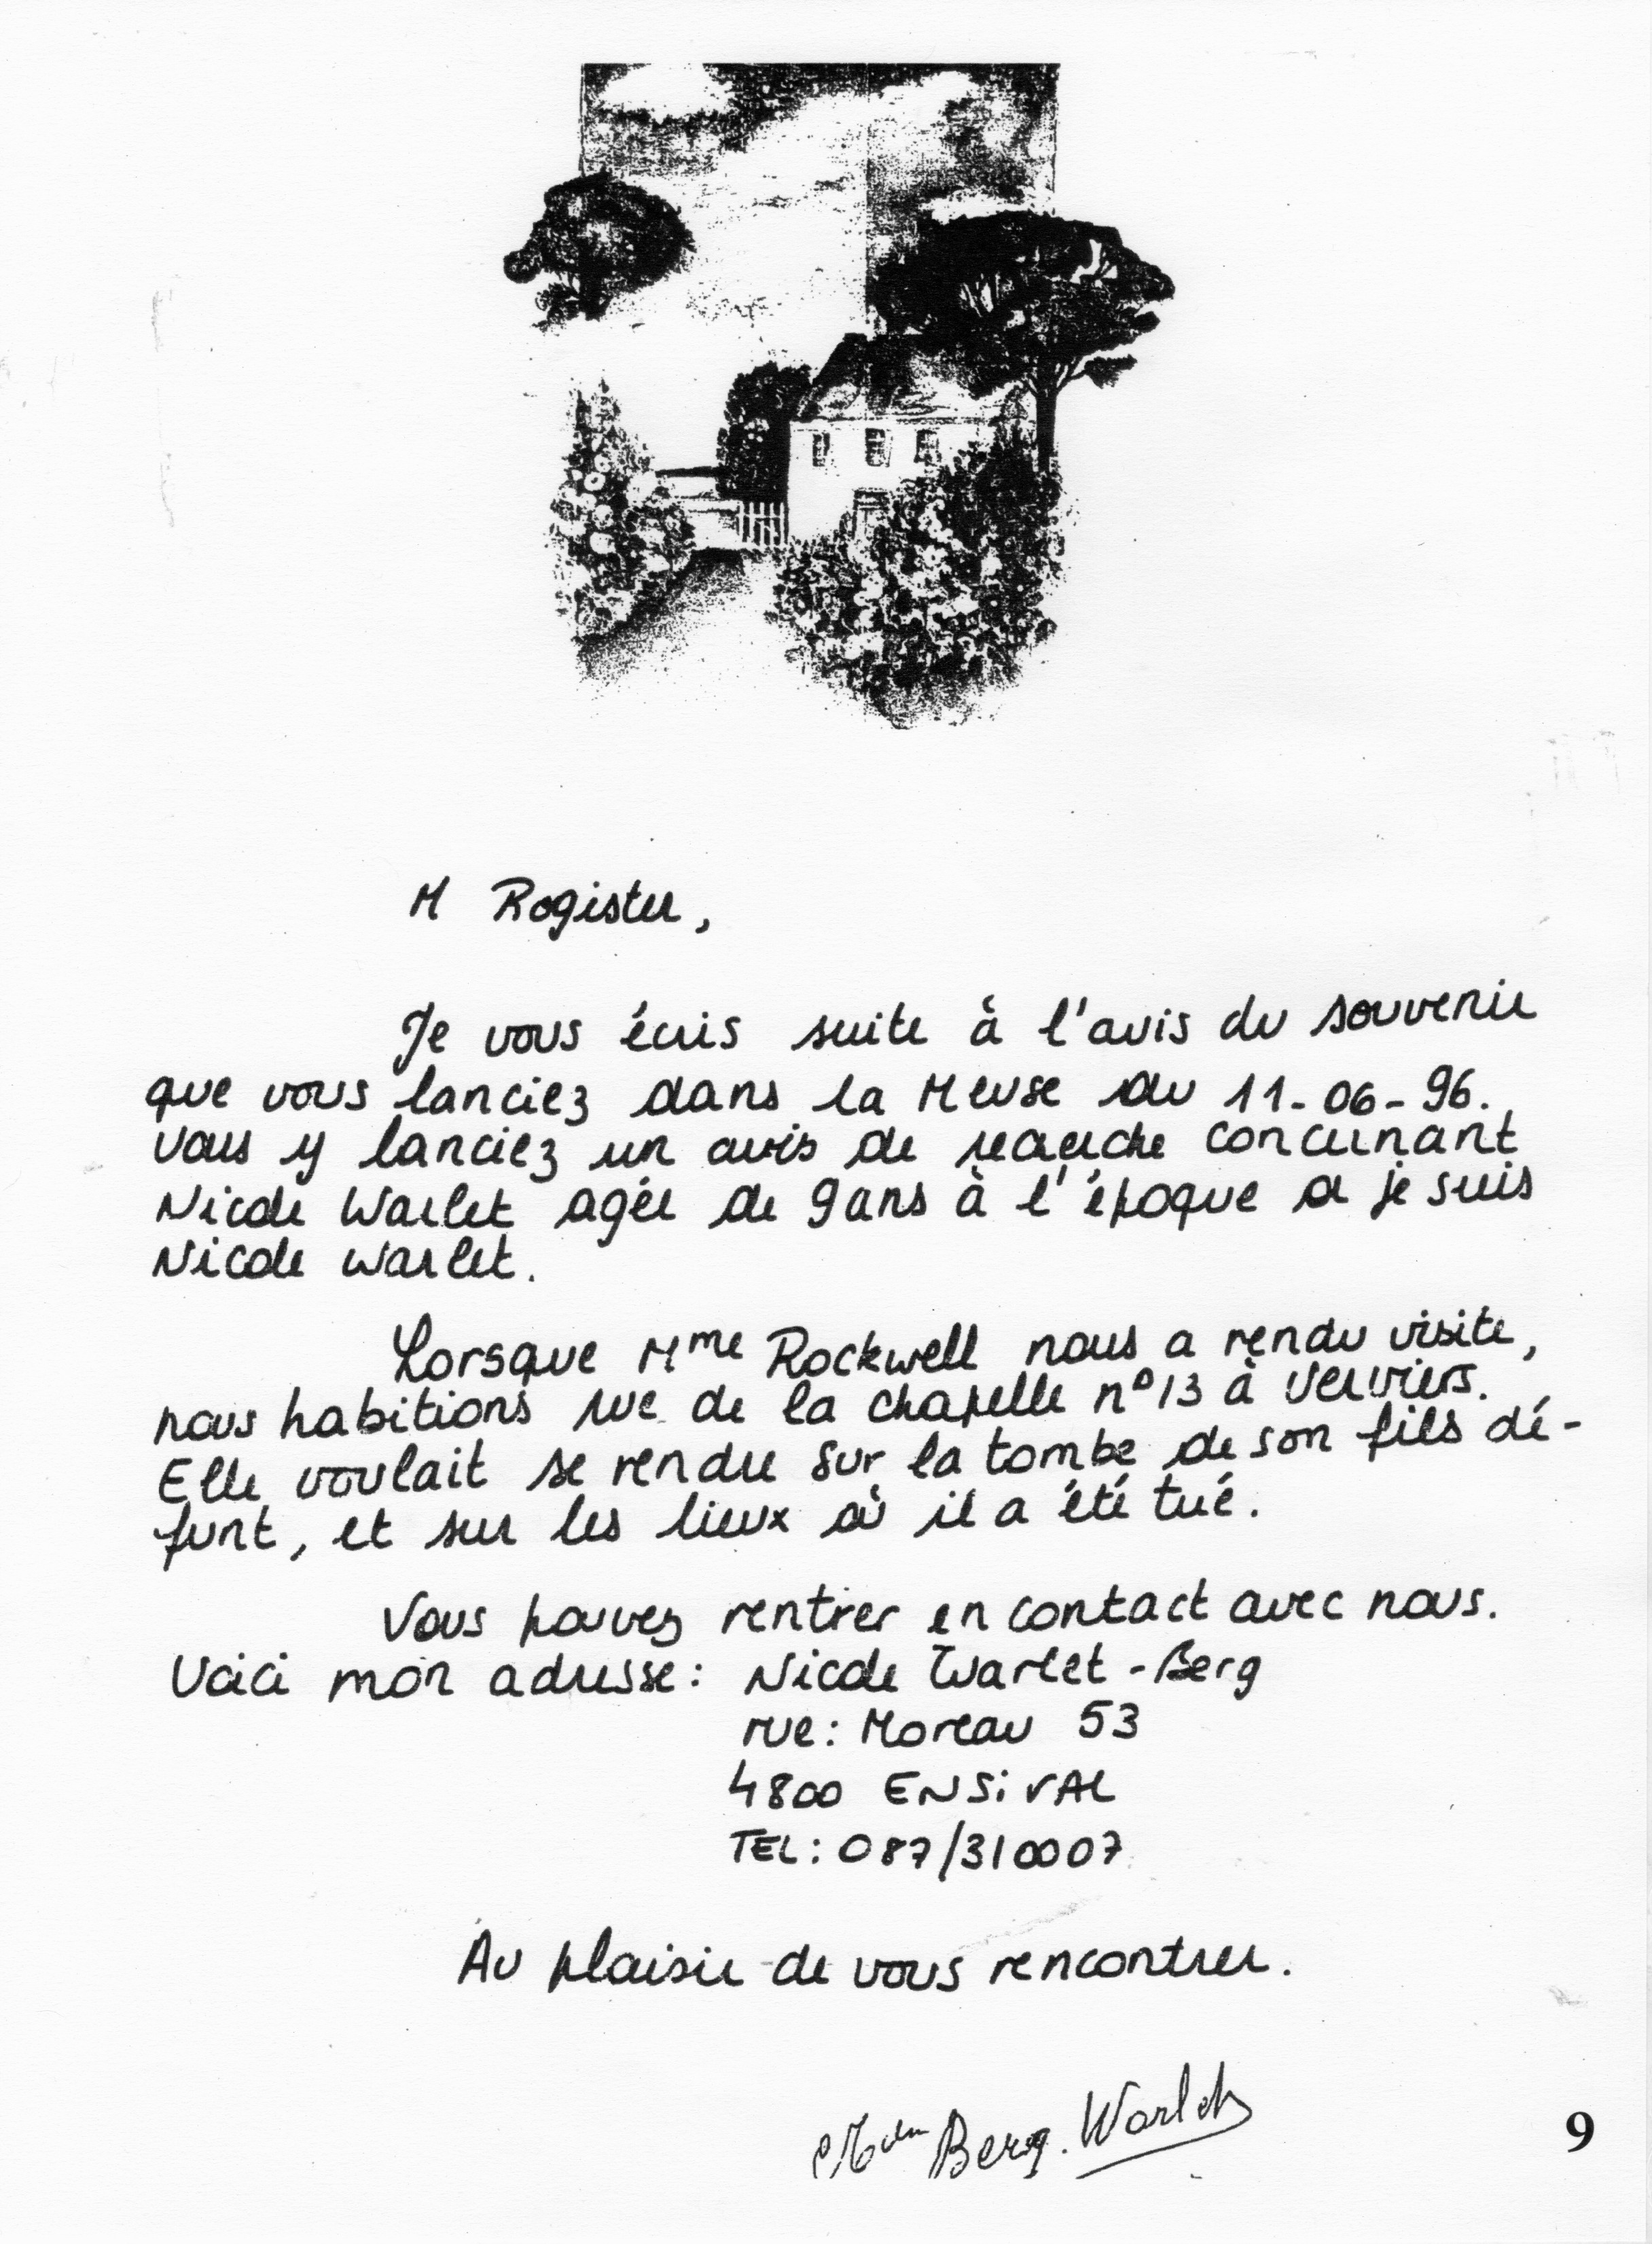 M Rogister,
Je vous écris suite à l'avis du souvenir
que vous lanciez dans la Meuse du 11-06-96.
Vous y lanciez un avis de recherche concernant
Nicole Warlet agée de 9 ans à l'époque or je suis
Nicole Warlet.
Lorsque Mme Rockwell nous a rendu visite,
nous habitions rue de la chapelle n° 13 à Verviers.
Elle voulait se rendre sur la tombe de son fils dé-
funt, et sur les lieux où il a été tué.
Vous pouvez rentrer en contact avec nous.
Voici mon adresse: Nicole Warlet-Berg
rue: Moreau 53
4800 ENSiVAL
TEL: 087/310007
Au plaisir de vous rencontrer.
Berg. Warlet
9